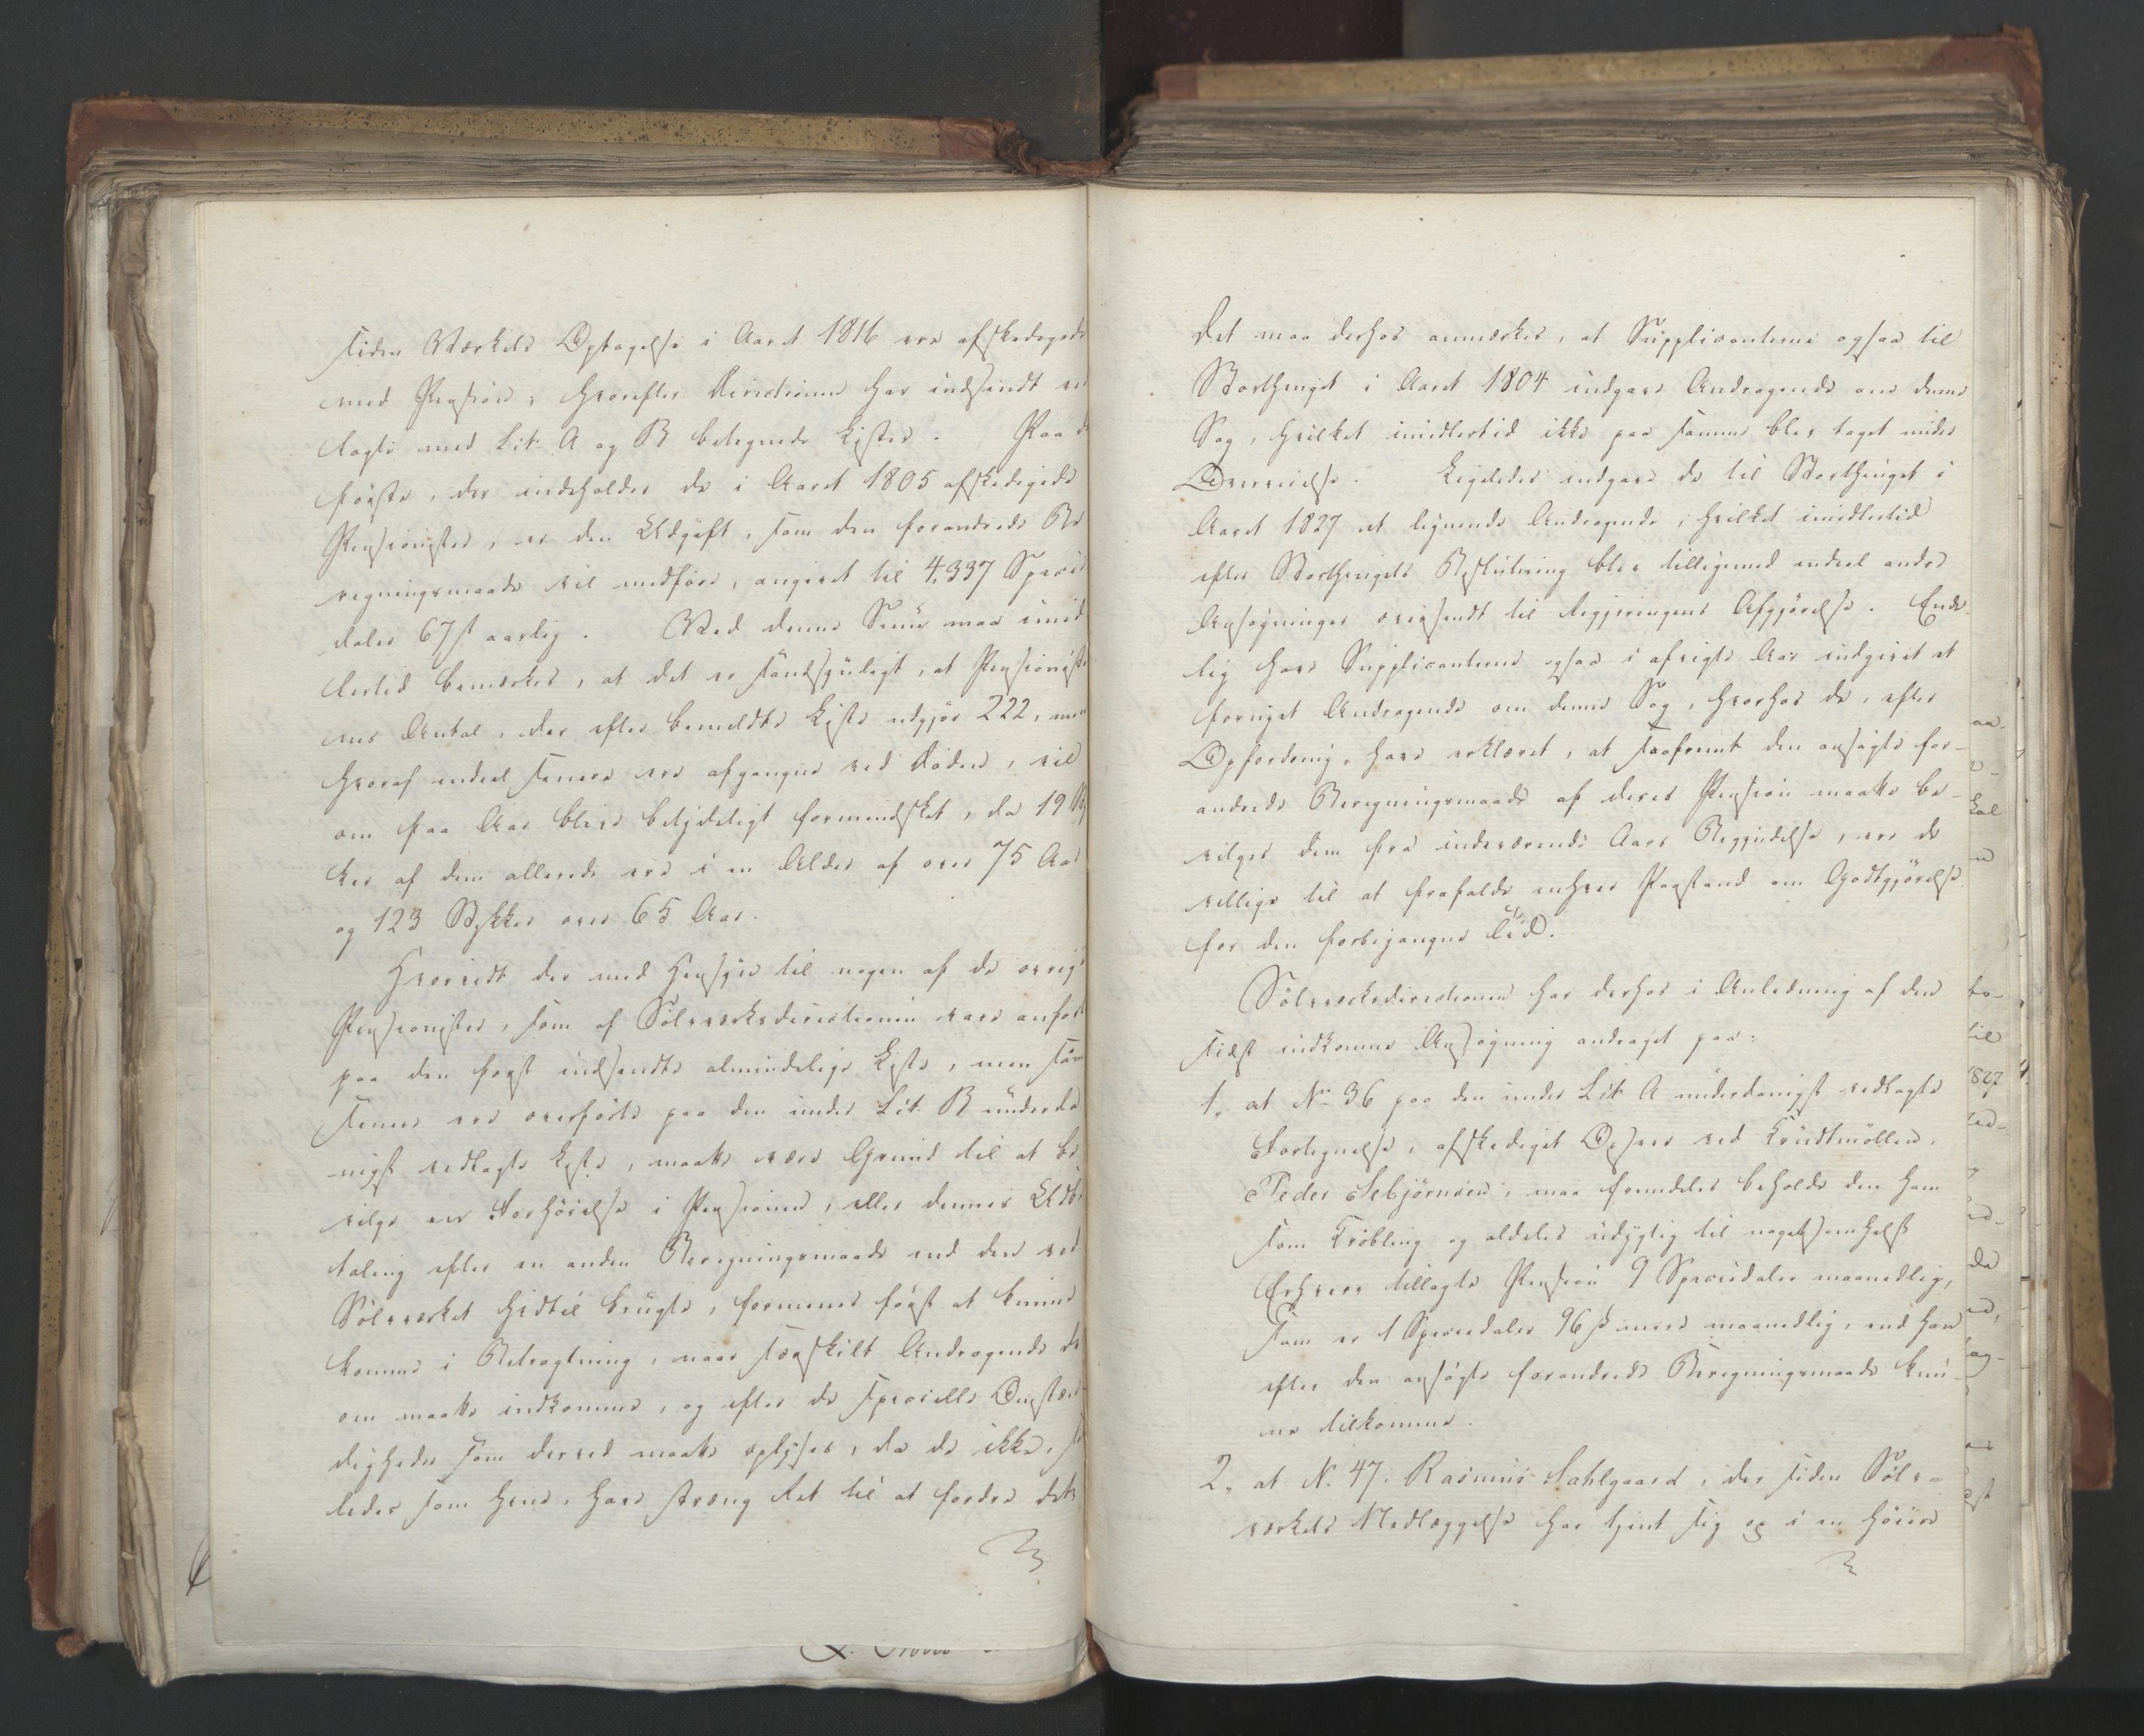 siden Værkets Optagelse i Aaret 1816 ere afskedigede
med Pension, hvorefter Directionen har indsendt ved
lagte med Lit. A og B betegnede Lister. Paa d
første, der indeholder de i Aaret 1805 afskedigede
Pensionister, er den Udgift, som den forandrede Be
regningsmaade vil medføre, angivet til 4,337 Specie
daler 67 s aarlig. Ved denne Sum maa imid
lertid bemærkes, at det er sandsynligt, at Pensionist
ernes Antal, der efter bemeldte Liste udgjør 222, men
hvoraf endeel senere ere afgangne ved Døden, vil
om faa Aar blive betydeligt formindsket, da 19 Sty
ker af dem allerede ere i en Alder af over 75 Aar
og 123 Stykker over 65 Aar.
Hvorvidt der med Hensyn til nogen af de øvrige
Pensionister, som af Sølvværksdirectionen vare anført
paa den først indsendte almindelige Liste, men som
senere ere overførte paa den under Lit. B underda
nigst vedlagte Liste, maatte være Grund til at be
vilge en Forhøielse i Pensionen, eller dennes Udbe
taling efter en anden Beregningsmaade end den ved
Sølvværket hidtil brugte, formenes først at kunne
komme i Betragtning, naar særskilt Andragende der
om maatte indkomme, og efter de specielle Omstæn
digheder som derved maatte oplyses, da de ikke, saa
ledes som hine, have streng Ret til at fordre dette
Det maa derhos anmærkes, at Supplicanterne ogsaa til
Storthinget i Aaret 1804 indgave Andragende om denne
Sag, hvilket imidlertid ikke paa samme blev taget under
Overveielse. Ligeledes indgave de til Storthinget i
Aaret 1827 et lignende Andragende, hvilket imidlertid
efter Storthingets Beslutning blev tilligemed endeel andre
Ansøgninger oversendt til Regjeringens Afgjørelse. Ende-
lig have Supplicanterne ogsaa i afvigte Aar indgivet et
fornyet Andragende om denne Sag, hvorhos de, efter
Opfordring, have erklæret, at saafremt den ansøgte for-
andrede Beregningsmaade af deres Pension maatte be-
vilges dem fra indeværende Aars Begyndelse, ere de
villige til at frafalde enhver Paastand om Godtgjørelse
for den forbigangne Tid.
Sølvværksdirectionen har derhos i Anledning af den
sidst indkomne Ansøgning andraget paa:
1, at No 36 paa den under Lit. A underdanigst vedlagte
Fortegnelse, afskediget Opsyn ved Krudtmøllen,
Peder Sebjørnsen, maa fremdeles beholde den ham
som Krøbling og aldeles udygtig til nogetsomhelst
Erhverv tillagte Pension 9 Speciedaler maanedlig,
som er 1 Speciedaler 96 s mere maanedlig, end han
efter den ansøgte forandrede Beregningsmaade kun-
ne tilkomme.
2, at N. 47. Rasmus Sahlgaard, der siden Sølv-
værkets Nedlæggelse har tjent sig op i en høiere